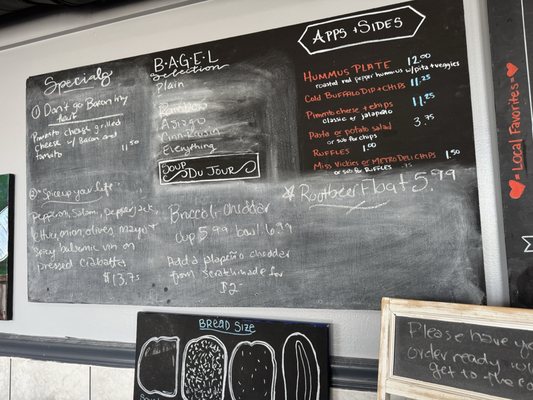 Specials
① Don't go Bacon my
heart
Pimento cheese grilled
cheese w/ Bacon and
tomato 11.50
② "Spice up your life"
Pepperoni, Salami, pepperjack,
lettuce, onion, olives, mayo +
Spicy balsamic vin on
pressed ciabatta
$13.75
B·A·G·E·L
Selection
Plain
Rainbow
Asiago
Cinn-Raisin
Everything
Soup
Du Jour
Broccoli cheddar
cup 5.99 bowl 6.99
Add a jalapeño cheddar
from scratch made for
$2-
Apps + Sides
Hummus Plate 12.00
roasted red pepper hummus w/ pita + veggies
Cold Buffalo Dip + Chips 11.25
Pimento cheese + chips 11.25
classic or jalapeño
Pasta or potato salad 3.75
or sub for chips
Ruffles 1.00
Miss Vickies or Metro Deli Chips 1.50
or sub for Ruffles .75
Rootbeer Float 5.99
= Local Favorites =
Bread Size
Please have yo
order ready w
get to the co